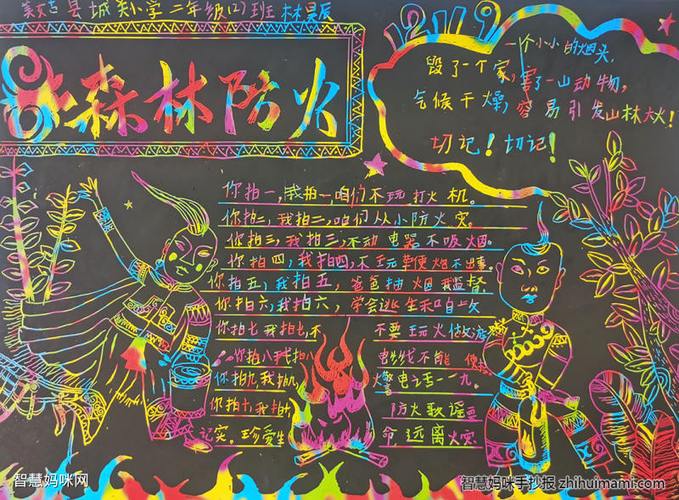 美姑县城关小学二年级(2)班 林昊辰
12119
森林防火
一个小小的烟头,
毁了一个家,害了一山动物,
气候干燥,容易引发山林大火!
切记!切记!
你拍一,我拍一,咱们不玩打火机。
你拍二,我拍二,咱们从小防火灾。
你拍三,我拍三,不动电器不吸烟。
你拍四,我拍四,不玩鞭炮不出事。
你拍五,我拍五,爸爸抽烟我
你拍六,我拍六,学会逃生和
你拍七我拍七,不 不要玩火做游
你拍八我拍八 电线不能
你拍九我拍九, 火警电话一一九。
你拍十我拍十 防火歌谣
记实。珍爱生 命远离火灾
智慧妈咪网
智慧妈咪手抄报 zhihuimami.com